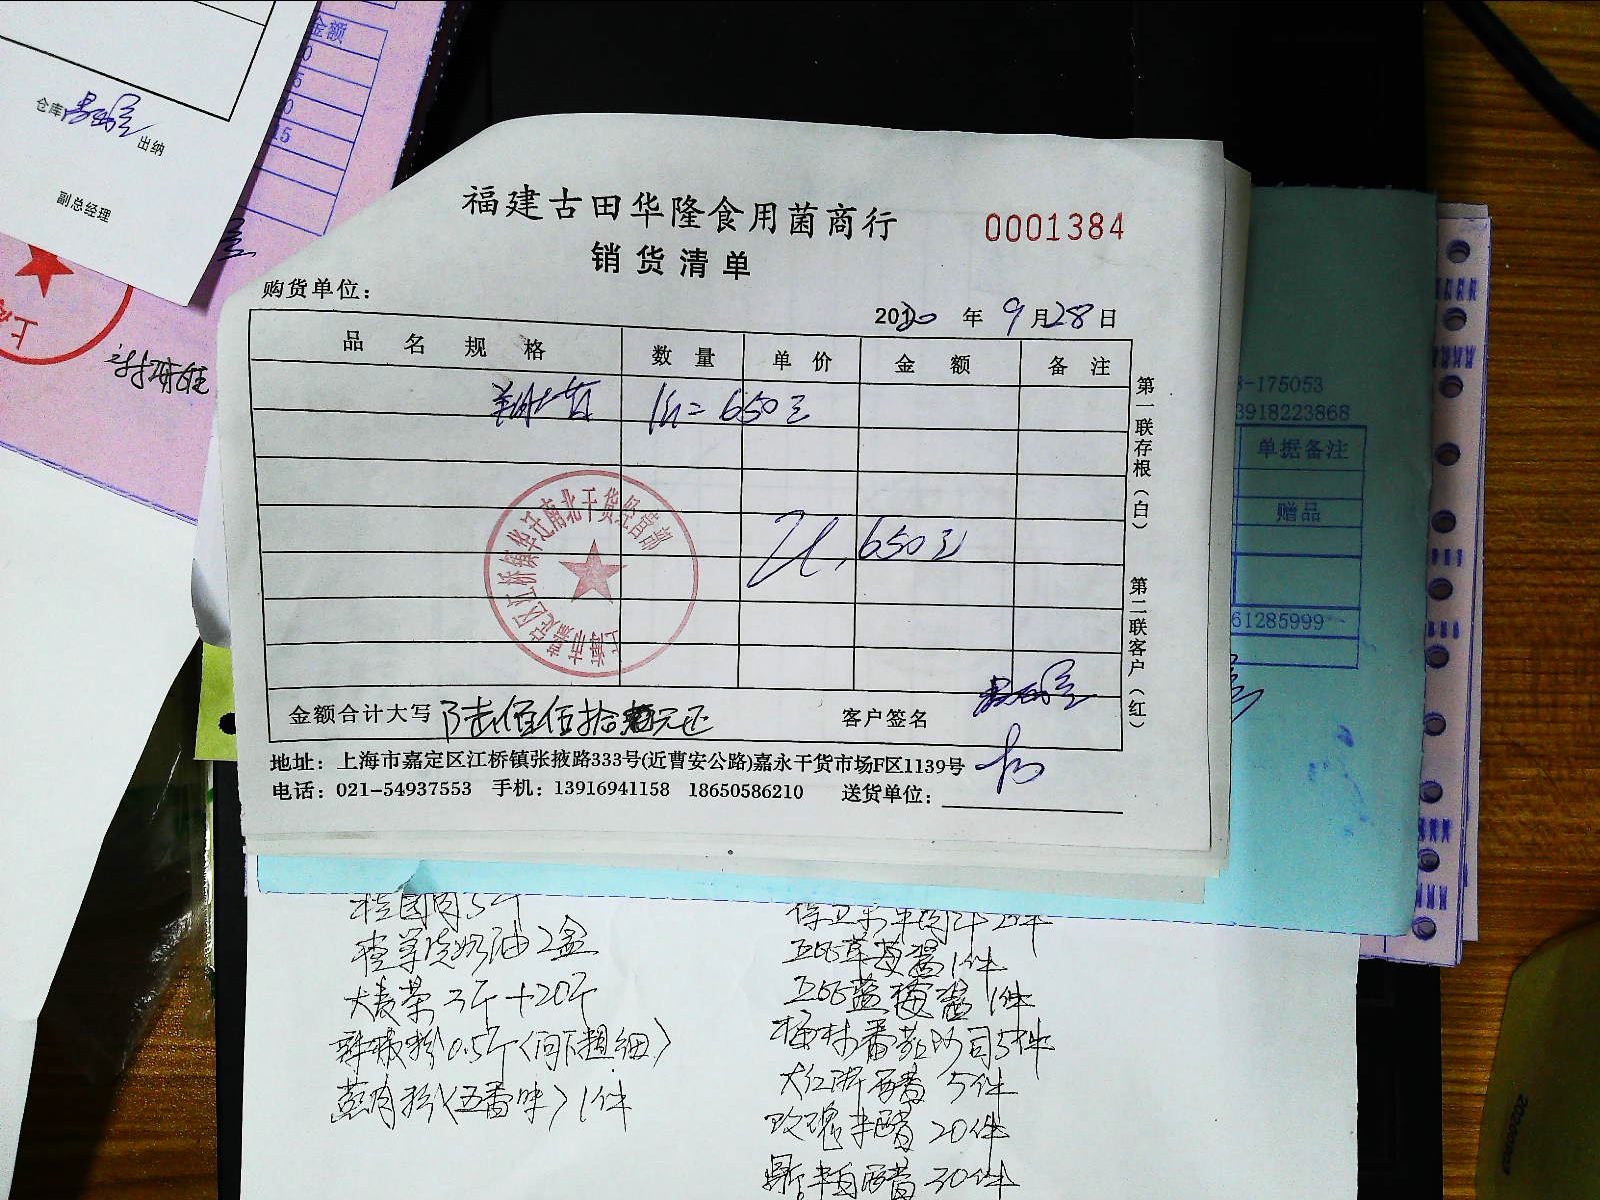 金额
仓库
出纳
副总经理
福建古田华隆食用菌商行
0001384
销货清单
购货单位：
2020 年 9月28日
品名规格 数量 单价 金额 备注
650元
650元
上海市嘉定区江桥镇华迁南北干货经营部
第一联存根（白）
第二联客户（红）
金额合计大写 陆佰伍拾元正
客户签名
地址：上海市嘉定区江桥镇张掖路333号(近曹安公路)嘉永干货市场F区1139号
电话：021-54937553 手机：13916941158 18650586210 送货单位：
-175053
3918223868
单据备注
赠品
61285999
桂圆肉5斤
奶油2盒
大麦茶3斤+20斤
辣椒粉0.5斤(问下粗细)
草莓酱1件
蓝莓酱1件
番茄沙司5件
大红浙醋 5件
玫瑰米醋 20件
白醋 30件